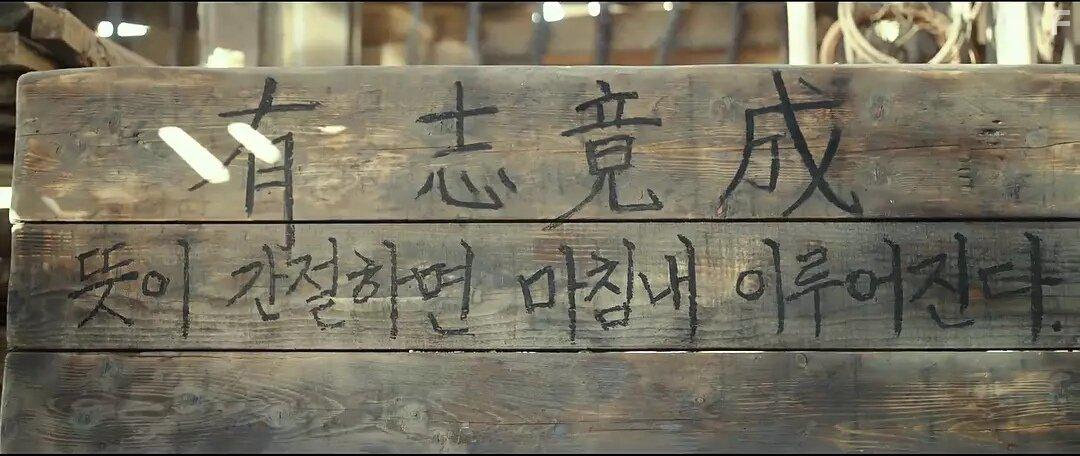 有志竟成
뜻이 간절하면 마침내 이루어진다.